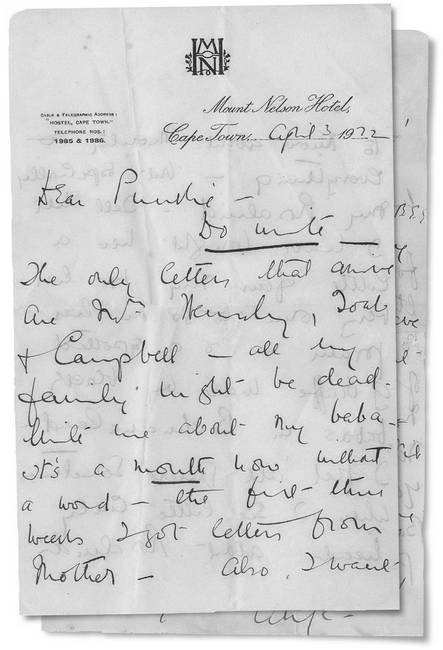 MNH
CABLE & TELEGRAPHIC ADDRESS:
"HOSTEL, CAPE TOWN."
TELEPHONE NOS:
1985 & 1986.
Mount Nelson Hotel,
Cape Town, April 3 1922
Dear Punkie —
Do write —
The only letters that arrive
are
& Campbell — all my
family might be dead.
Write me about my baba —
it's a month now without
a word — the first three
weeks I got letters from
Mother — Also, I want